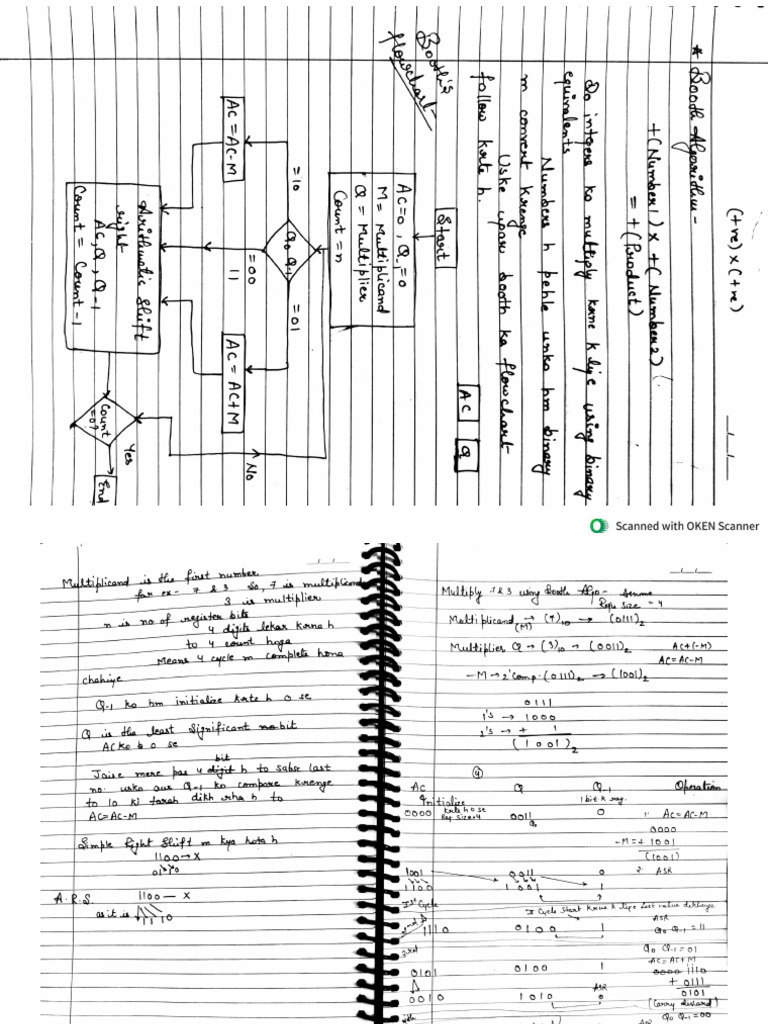 (+ve) × (+ve)
* Booth Algorithm -
+(Number 1) × +(Number 2)
= +(Product)
Do integers ko multiply krne k liye using binary
equivalents
Numbers h pehle unko hm binary
m convert krenge
Uske baar booth ka flowchart
follow krte h.
Booth's
flowchart-
Start
AC Q
AC=0, Q-1=0
M= Multiplicand
Q = Multiplier
Count = n
Q0 Q-1
=10
=00
11
=01
AC = AC-M
AC = AC+M
Arithmetic Shift
right
AC, Q, Q-1
Count = Count-1
Count
=0?
No
Yes
End
Scanned with OKEN Scanner
Multiplicand is the first number
for ex- 7 & 3 So, 7 is multiplicand
3 is multiplier
n is no of register bits
4 digits lekar krna h
to 4 count hoga
Means 4 cycle m complete hona
chahiye
Q-1 ko hm initialize krte h 0 se
Q is the least significant no bit
AC ko b 0 se
bit
Jaise mere pas 4 digit h to sabse last
no. usko aur Q-1 ko compare krenge
to 10 ki tarah dikh rha h to
AC=AC-M
Simple Right Shift m kya hota h
1100→X
A.R.S. 1100 — X
as it is 1110
Multiply 7 & 3 using Booth Algo- Assume
Regu size = 4
Multiplicand → (7)10 → (0111)2
(M)
Multiplier Q → (3)10 → (0011)2 AC+(-M)
AC=AC-M
-M → 2'comp. (0111)2 → (1001)2
0111
1's → 1000
2's → + 1
(1001)2
(4)
AC Q Q-1 Operation
Initialize 1 bit k reg.
krte h 0 se
0000 Reg Size=4 0011 0 1. AC=AC-M
0000
-M=+1001
(1001)
1001 0011 0 2. ASR
1100 1001 1
Ist Cycle
II Cycle Start krne k liye last value dekhenge
ASR
1110 0100 1 Q0 Q-1 = 11
3rd
Q0 Q-1 = 01
AC=AC+M
0101 0100 1 0000 1110
+ 0111
0101
ASR
0010 1010 0 (Carry discard)
Q0 Q-1 = 00